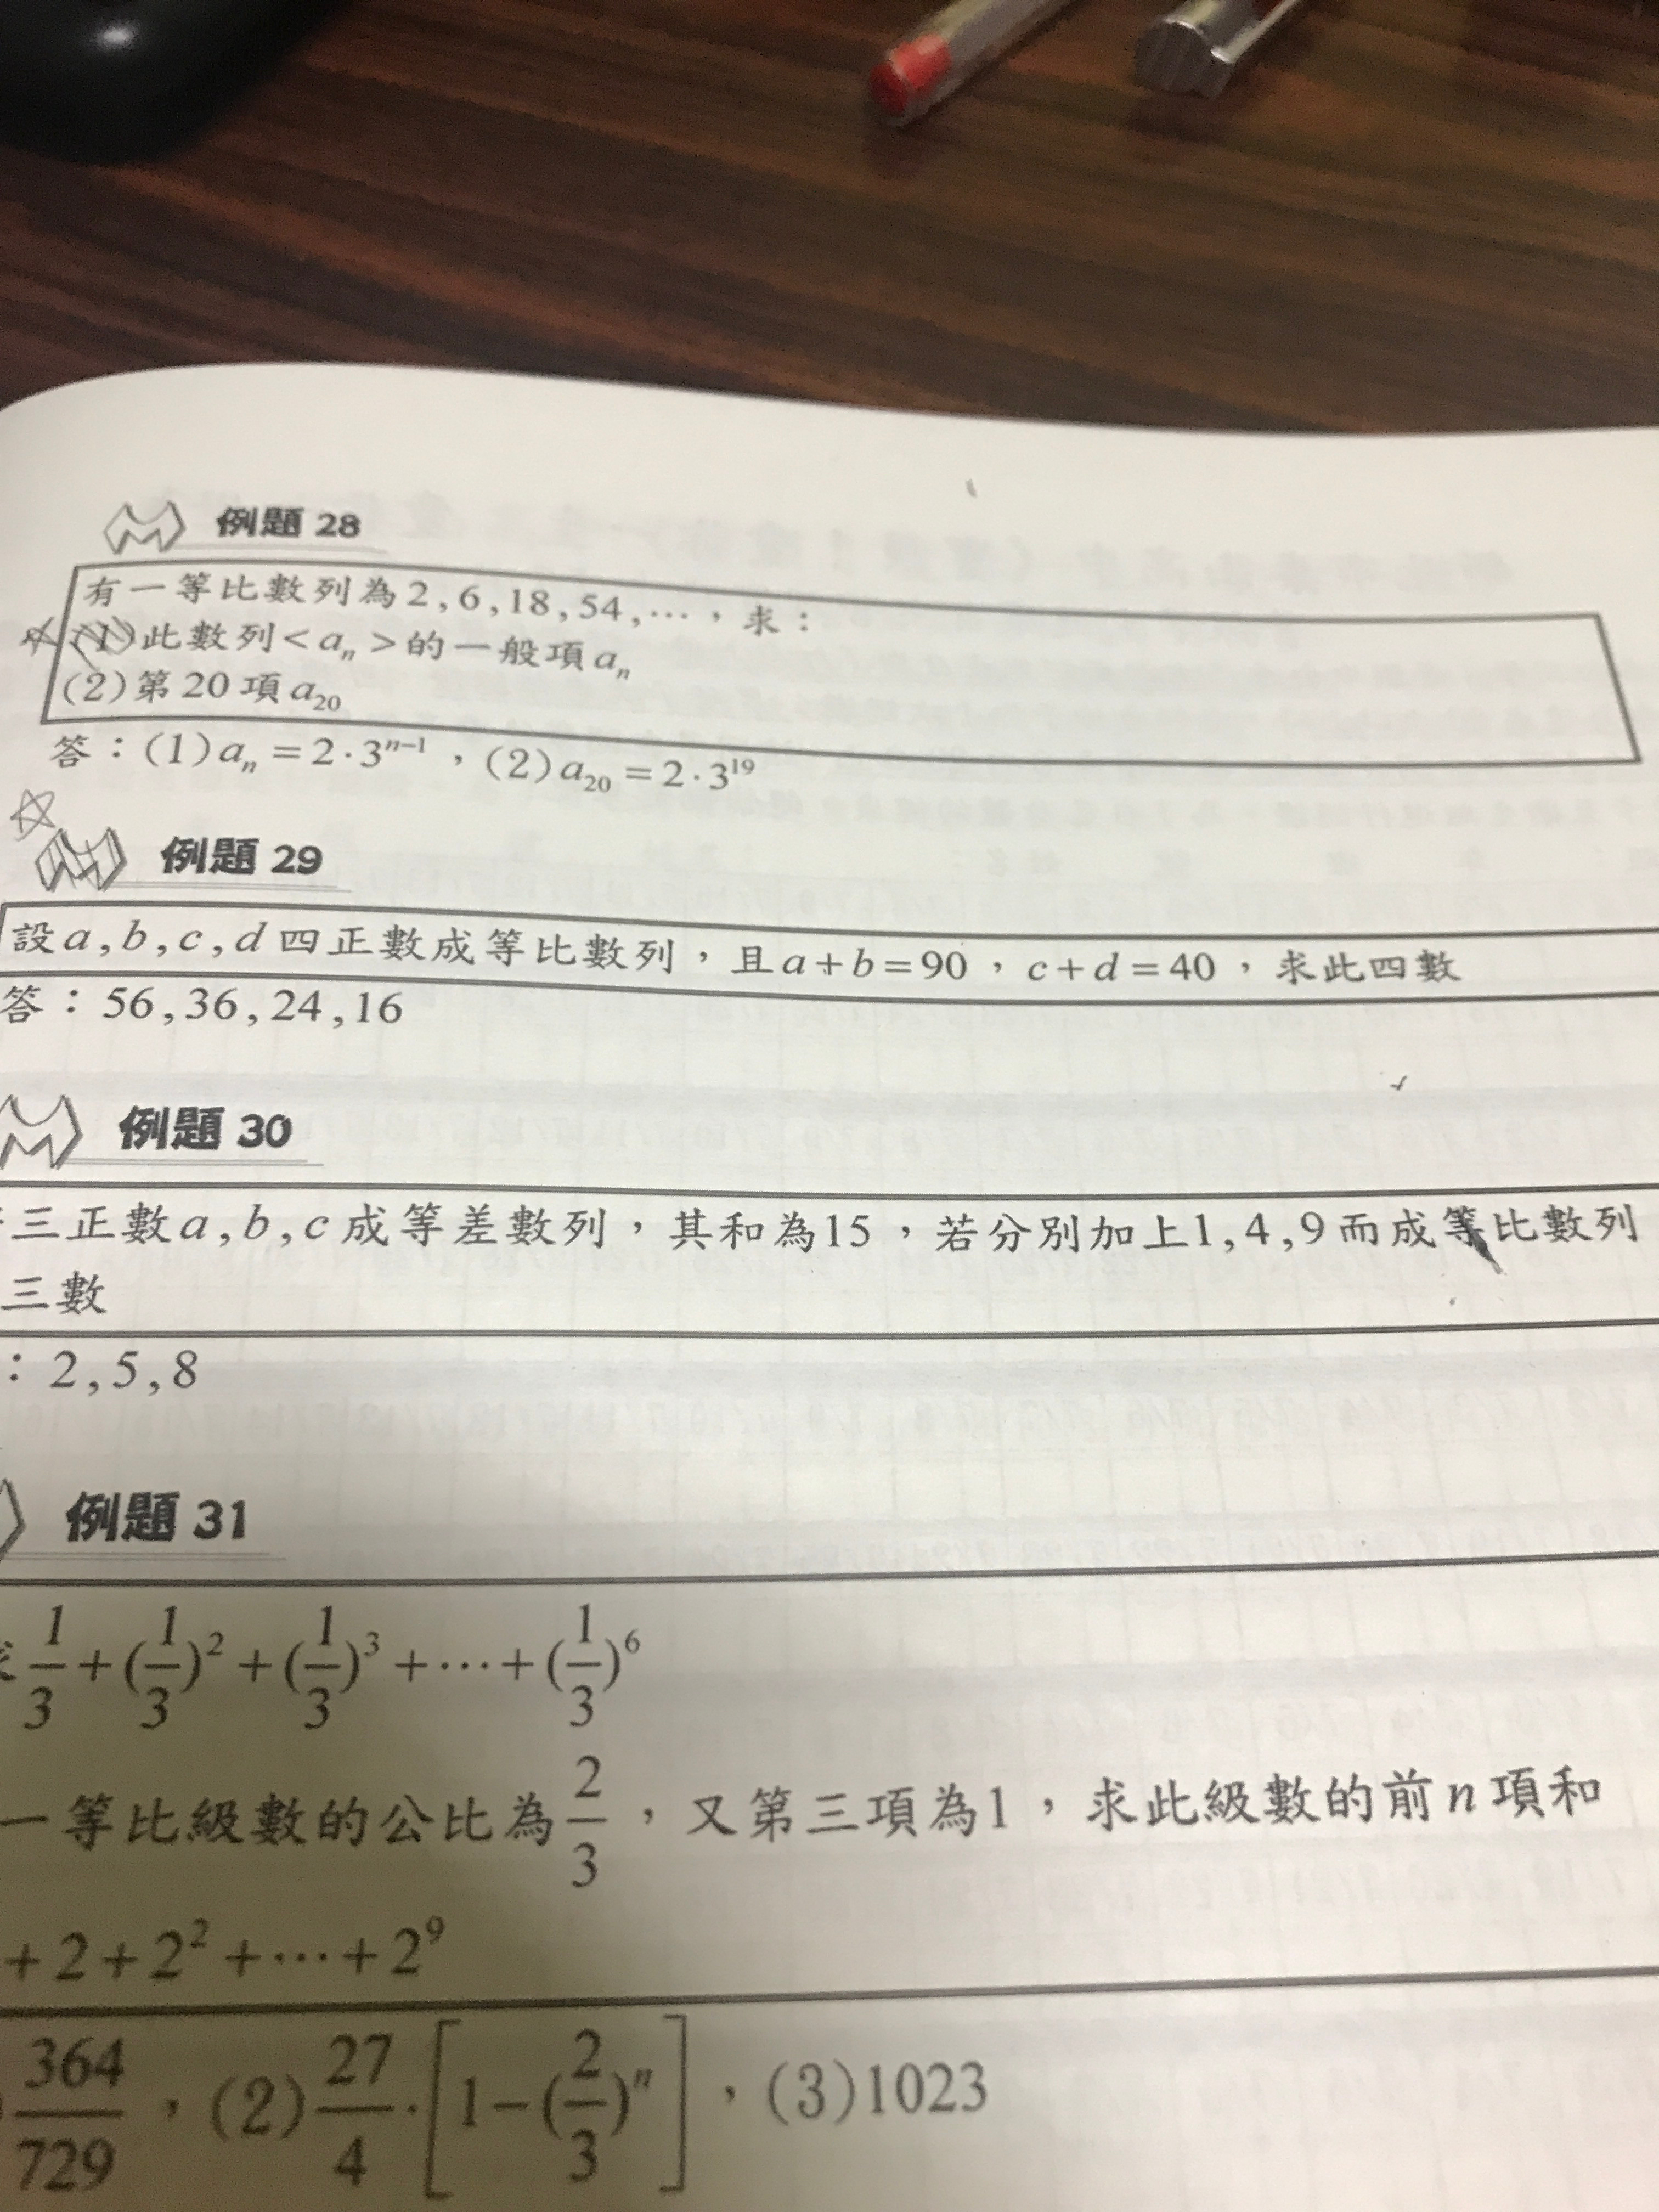 例題 28
有一等比數列為2,6,18,54,…，求：
(1)此數列<aₙ>的一般項aₙ
(2)第20項a₂₀
答：(1)aₙ=2·3ⁿ⁻¹，(2)a₂₀=2·3¹⁹
例題 29
設a,b,c,d四正數成等比數列，且a+b=90，c+d=40，求此四數
答：56,36,24,16
例題 30
三正數a,b,c成等差數列，其和為15，若分別加上1,4,9而成等比數列
三數
：2,5,8
例題 31
求1/3+(1/3)²+(1/3)³+…+(1/3)⁶
一等比級數的公比為2/3，又第三項為1，求此級數的前n項和
+2+2²+…+2⁹
364/729，(2)27/4·[1-(2/3)ⁿ]，(3)1023